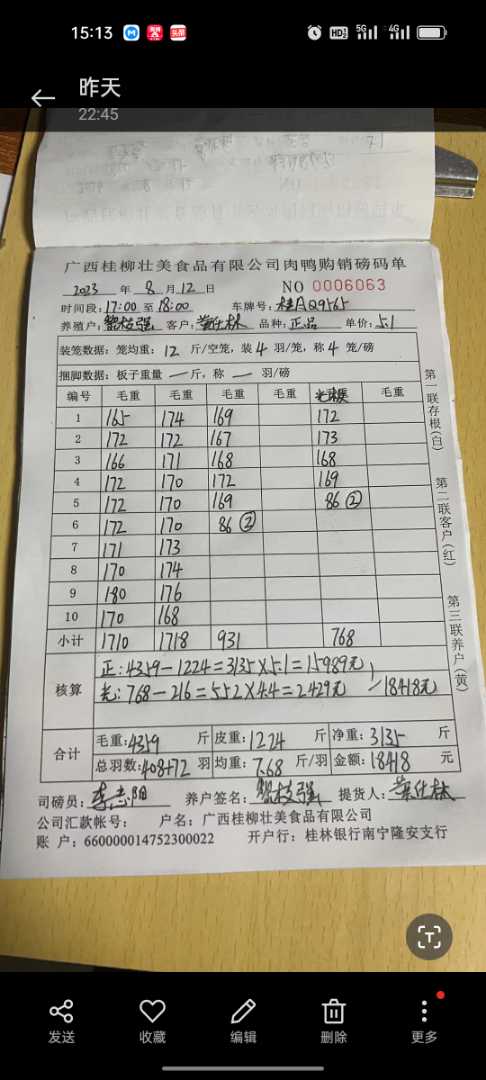 15:13
昨天
22:45
广西桂柳壮美食品有限公司肉鸭购销磅码单
2023 年 8 月 12 日 NO 0006063
时间段: 17:00 至 18:00 车牌号: 桂AQ9565
养殖户: 黎枝强 客户: 黄仕林 品种: 正品 单价: 5.1
装笼数据: 笼均重: 12 斤/空笼, 装 4 羽/笼, 称 4 笼/磅
捆脚数据: 板子重量 — 斤, 称 — 羽/磅
编号 毛重 毛重 毛重 毛重 毛重
1 165 174 169 172
2 172 172 167 173
3 166 171 168 168
4 172 170 172 169
5 172 170 169 86 ②
6 172 170 86 ②
7 171 173
8 170 174
9 180 176
10 170 168
小计 1710 1718 931 768
核算 正: 4359-1224=3135×5.1=15989元
光: 768-216=552×4.4=2429元 /18418元
合计 毛重: 4359 斤 皮重: 1224 斤 净重: 3135 斤
总羽数: 408+72 羽 均重: 7.68 斤/羽 金额: 18418 元
司磅员: 李志阳 养户签名: 黎枝强 提货人: 黄仕林
公司汇款帐号: 户名: 广西桂柳壮美食品有限公司
账 户: 660000014752300022 开户行: 桂林银行南宁隆安支行
第一联存根(白)
第二联客户(红)
第三联养户(黄)
发送 收藏 编辑 删除 更多